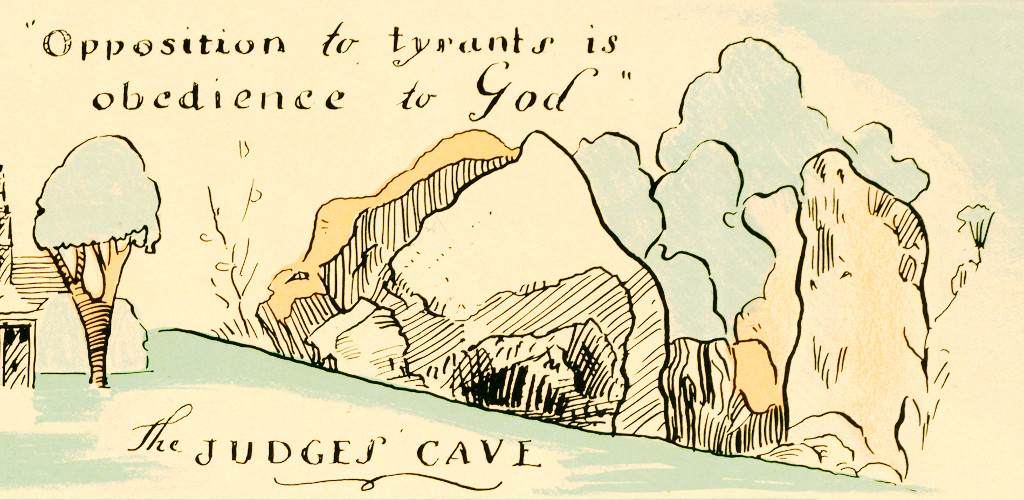 "Opposition to tyrants is
obedience to God"
The JUDGES' CAVE